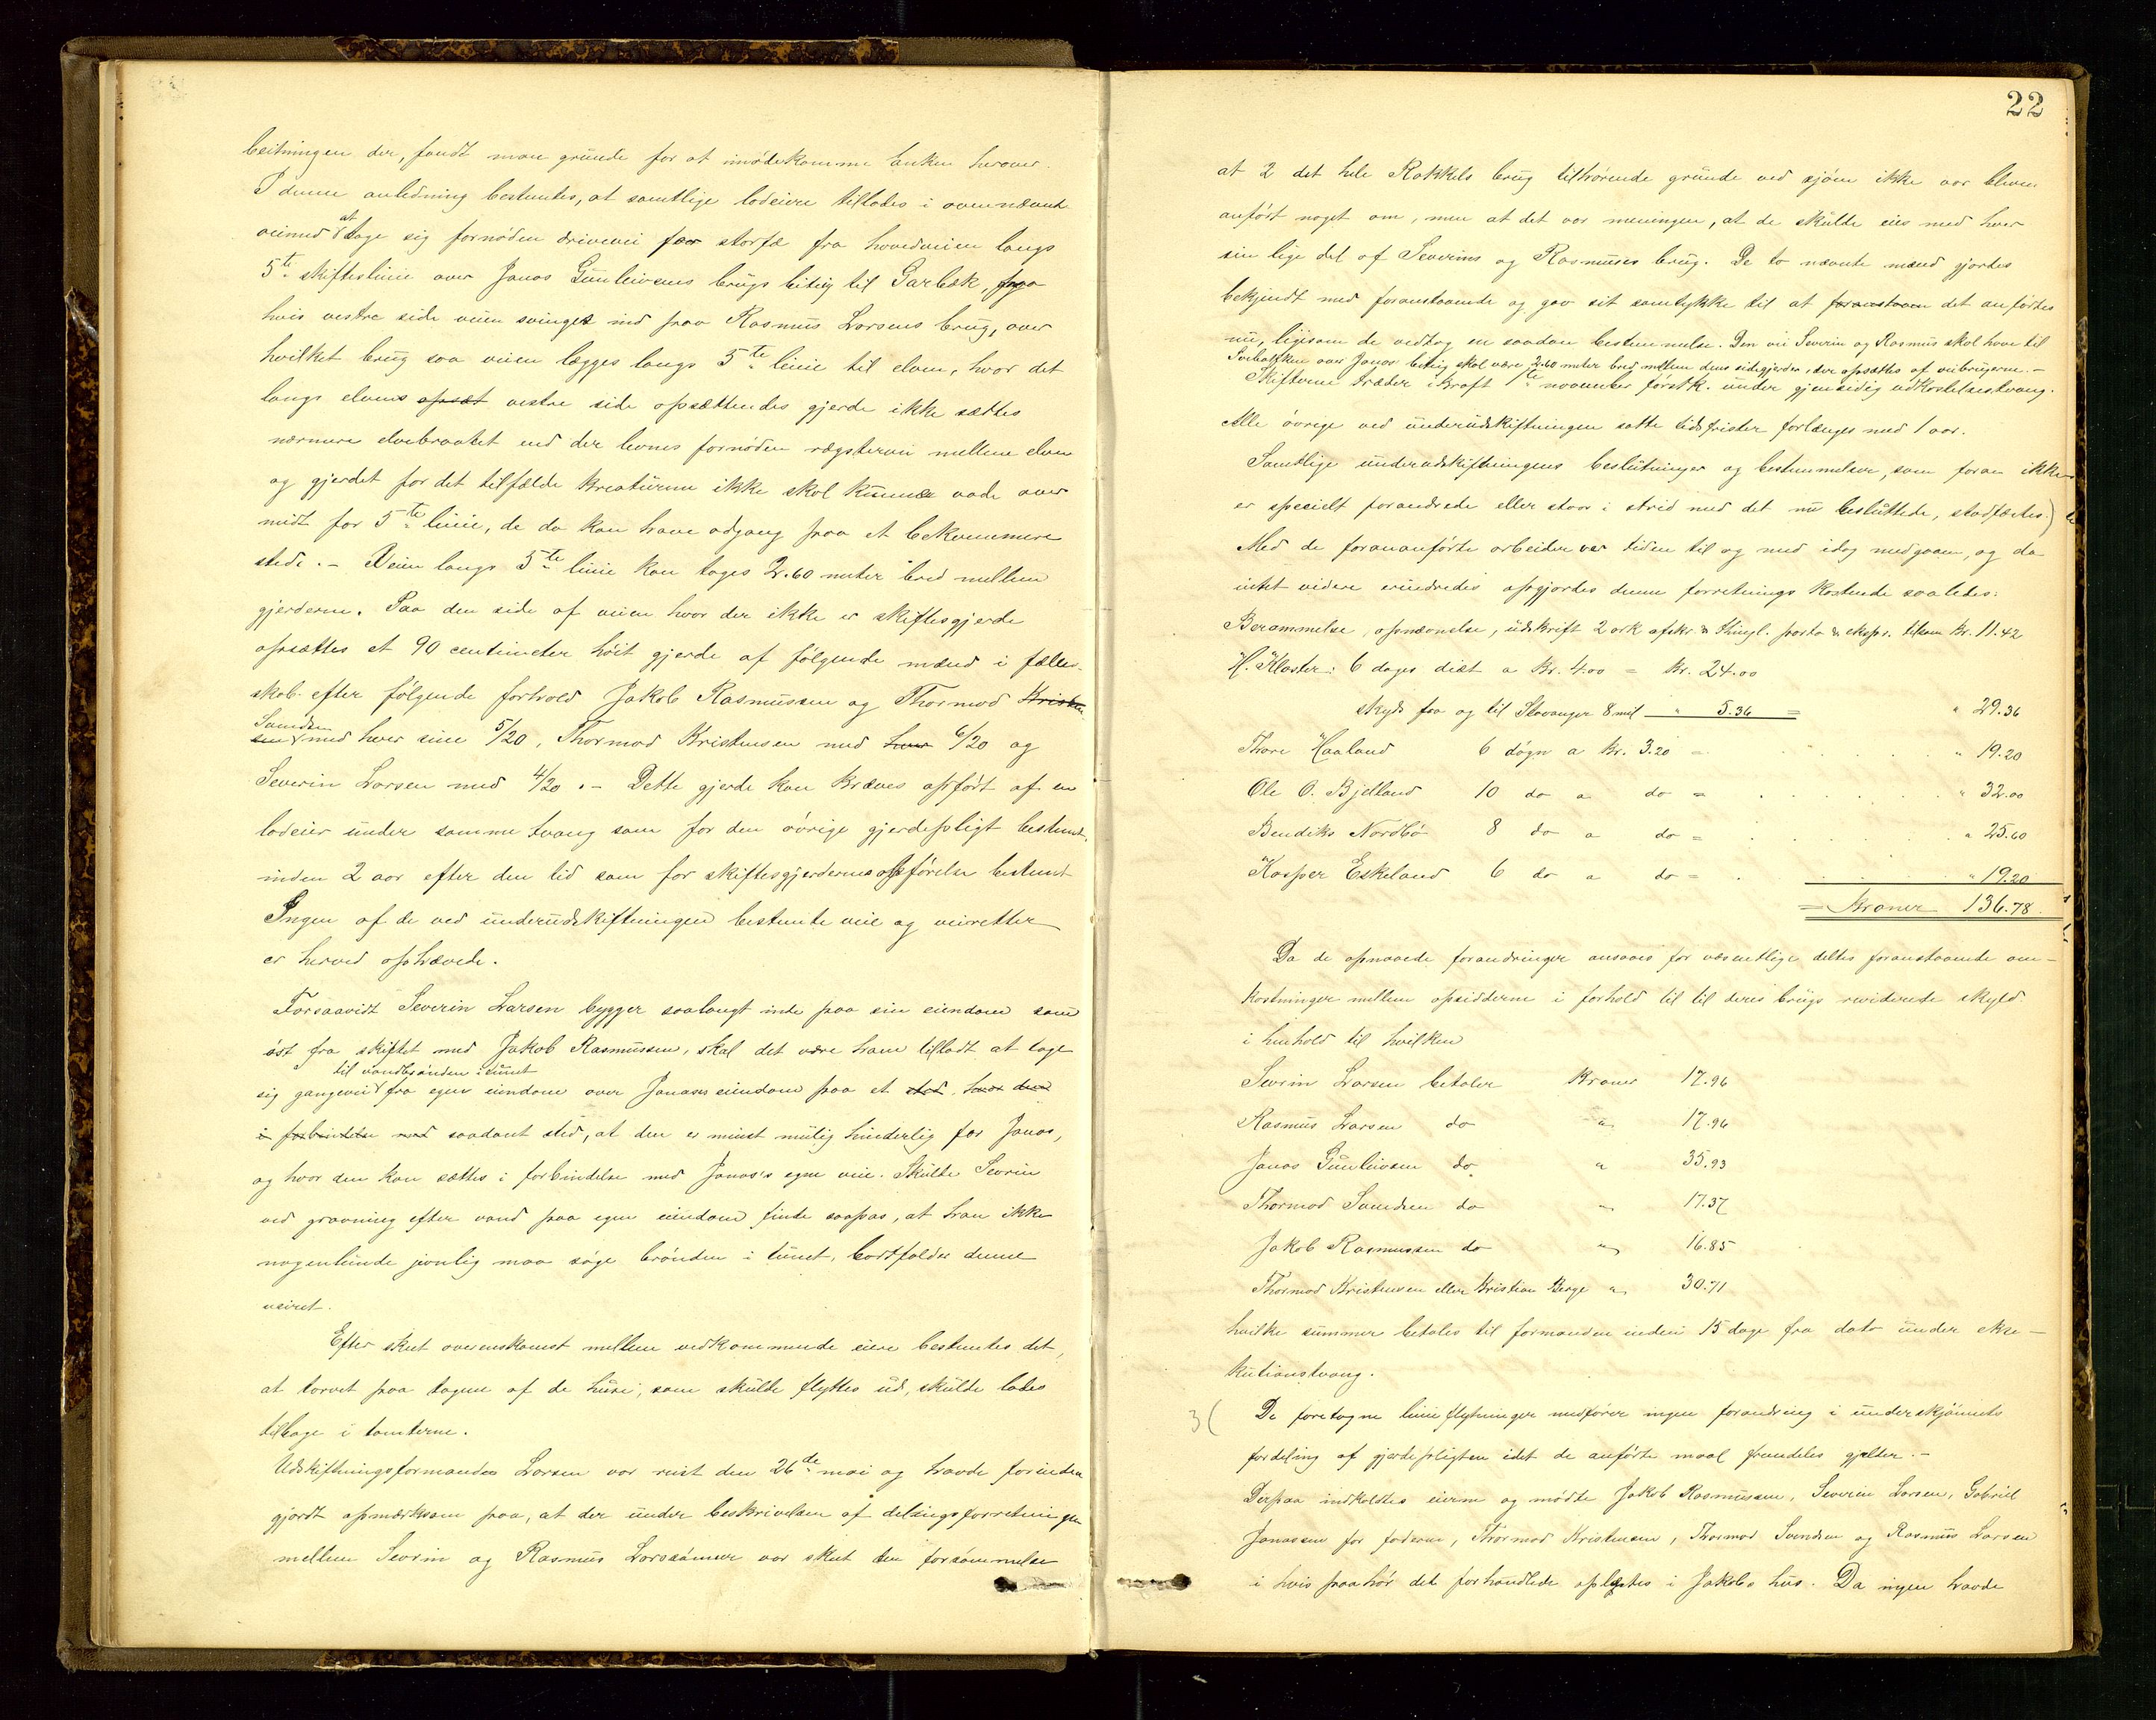 beitningen der, fandt man grunde for at imødekomme anken herover.
I denne anledning bestemtes, at samtlige lodeiere tillodes i ovennævnte
veimed at tage sig fornøden drivevei for storfæ fra hovedveien langs
5te skifteslinie over Jonas Gunleivsens brugs beitig til Garbæk, fra
hvis vestre side veien svinges ind paa Rasmus Larsens brug, over
hvilket brug saa veien lægges langs 5te linie til elven, hvor det
langs elvens opsæt vestre side opsættendes gjerde ikke sættes
nærmere elvebraatet end der levnes fornøden rægstervei mellem elven
og gjerdet for det tilfælde kreaturene ikke skal kunne vade over
midt for 5te linie, de da kan have adgang paa et bekvemmere
sted. - Veien langs 5te linie kan tages 2.60 meter bred mellem
gjerderne. Paa den side af veien hvor der ikke er skiftesgjerde
opsættes et 90 centimeter höit gjerde af følgende mænd i fælles-
skab efter følgende forhold Jakob Rasmussen og Thormod Kristen
Svendsen
sen med hver sine 5/20, Thormod Kristensen med hver 6/20 og
Severin Larsen med 4/20. - Dette gjerde kan kræves opført af en
lodeier under samme tvang som for den øvrige gjerdepligt bestemt,
inden 2 aar efter den tid som for skiftesgjerdernes opførelse bestemt
Ingen af de ved underudskiftningen bestemte veie og veiretter
er herved ophævede.
Forsaavidt Severin Larsen bygger saalangt inde paa sin eiendom som
øst fra skiftet med Jakob Rasmussen, skal det være ham tilladt at tage
til vandbrønden i tunet
sig gangvei fra egen eiendom over Jonases eiendom paa et sted, hvor den
i forbindelse med saadant sted, at den er minst mulig hinderlig for Jonas,
og hvor den kan sættes i forbindelse med Jonas's egne veie. Skulde Sevrin
ved gravning efter vand paa egen eiendom finde saapas, at han ikke
nogenlunde jevnlig maa søge brønden i tunet, bortfalder denne
veiret.
Efter skeet overenskomst mellem vedkommende eiere bestemtes det,
at torvet paa tagene af de huse, som skulde flyttes ud, skulde lades
tilbage i tomterne.
Udskiftningsformanden Larsen var reist den 26de mai og havde forinden
gjort opmærksom paa, at der under beskrivelsen af delingsforretningen
mellem Sevrin og Rasmus Larssønner var skeet den forsømmelse
22
at 2 det hele Rakkels brug tilhørende grunde ved sjøen ikke var bleven
anført noget om, men at det var meningen, at de skulde eies med hver
sin lige del af Severins og Rasmuses brug. De to nævnte mænd gjordes
bekjendt med foranstaaende og gav sit samtykke til at foranstaaen det anførtes
nu, ligesom de vedtog en saadan bestemmelse. Den vei Severin og Rasmus skal have til
over Jonas beitig skal være 2.60 meter bred mellem dens sidegjerder, der opsættes af veibrugerne. -
Skifterne træder i kraft 1te november førstk. under gjensidig udkastelsestvang.
Alle øvrige ved underudskiftningen satte tidsfrister forlænges med 1 aar.
Samtlige underudskiftningens beslutninger og bestemmelser, som foran ikke
er specielt forandrede eller staar i strid med det nu besluttede, stadfæstes.)
Med de forananførte arbeider var tiden til og med idag medgaaen, og da
intet videre erindredes opgjordes denne forretnings kostende saaledes:
Berammelse, opnævnelse, udskrift 2 ark afskr. & thingl. porto & ekspr. tilsam Kr. 11.42
H. Kloster: 6 dages diæt a Kr. 4.00 = Kr. 24.00
skyds fra og til Stavanger 8 mil " 5.36 = " 29.36
Thore Haaland 6 døgn a Kr. 3.20 = " 19.20
Ole O. Bjelland 10 do a do = " 32.00
Bendiks Nordbø 8 do a do = " 25.60
Kasper Eskeland 6 do a do = " 19.20
= Kroner 136.78.
Da de opnaaede forandringer ansaaes for væsentlige deltes foranstaaende om-
kostninger mellem opsidderne i forhold til til deres brugs reviderede skyld
i henhold til hvilken
Sevrin Larsen betaler Kroner 17.96
Rasmus Larsen do " 17.96
Jonas Gunleivsen do " 35.93
Thormod Svendsen do " 17.37
Jakob Rasmussen do " 16.85
Thormod Kristensen eller Kristian Berge " 30.71
hvilke summer betales til formanden inden 15 dage fra dato under ekse-
kutionstvang.
3( De foretagne linieflytninger medfører ingen forandring i underskjønnets
fordeling af gjerdepligten idet de anførte maal fremdeles gjelder. -
Derpaa indkaldtes eierne og mødte Jakob Rasmussen, Severin Larsen, Gabriel
Jonassen for faderen, Thormod Kristensen, Thormod Svendsen og Rasmus Larsen
i hvis paahør det forhandlede oplæstes i Jakobs hus. Da ingen havde